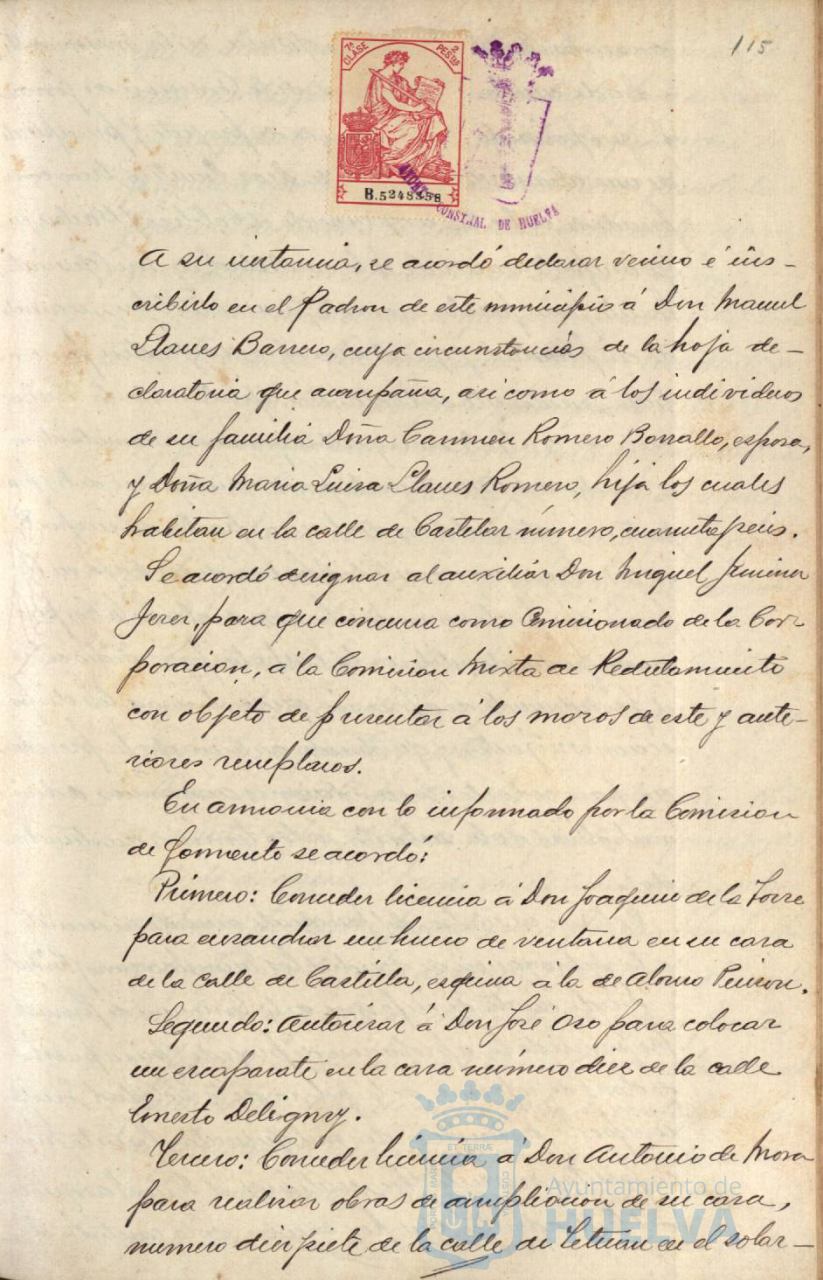 115
7ª CLASE
2 PESTAS
B.5248358
AYUNTº CONSTNAL DE HUELVA
A su instancia, se acordó declarar vecino é ins-
cribirlo en el Padron de este municipio á Don Manuel
Llanes Barrero, cuya circunstancias de la hoja de-
claratoria que acompaña, asi como á los individuos
de su familia Doña Carmen Romero Borrallo, esposa,
y Doña Maria Luisa Llanes Romero, hija los cuales
habitan en la calle de Castelar número, cuarenta y seis.
Se acordó designar al auxiliar Don Miguel Jimenez
Jerez, para que concurra como Comisionado de la Cor-
poracion, á la Comision Mixta de Reclutamiento
con objeto de presentar á los mozos de este y ante-
riores reemplazos.
En armonia con lo informado por la Comision
de Fomento se acordó:
Primero: Conceder licencia á Don Joaquin de la Torre
para ensanchar un hueco de ventana en su casa
de la calle de Castilla, esquina á la de Alonso Pinzon.
Segundo: Autorizar á Don José Oso para colocar
un escaparate en la casa número diez de la calle
Ernesto Deligny.
Tercero: Conceder licencia á Don Antonio de Mora
para realizar obras de ampliacion de su casa,
numero diez y siete de la calle de Tetuan en el solar-
Ayuntamiento de
HUELVA